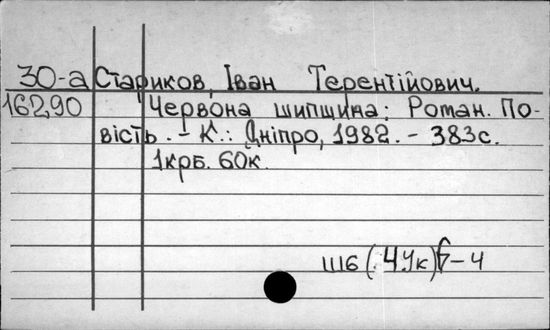 30-а Стариков, Іван Терентійович.
16290 Червона шипшина: Роман. По-
вість. - К.: Дніпро, 1982. - 383с.
1крб. 60к.
Ш6(4Ук)6-4